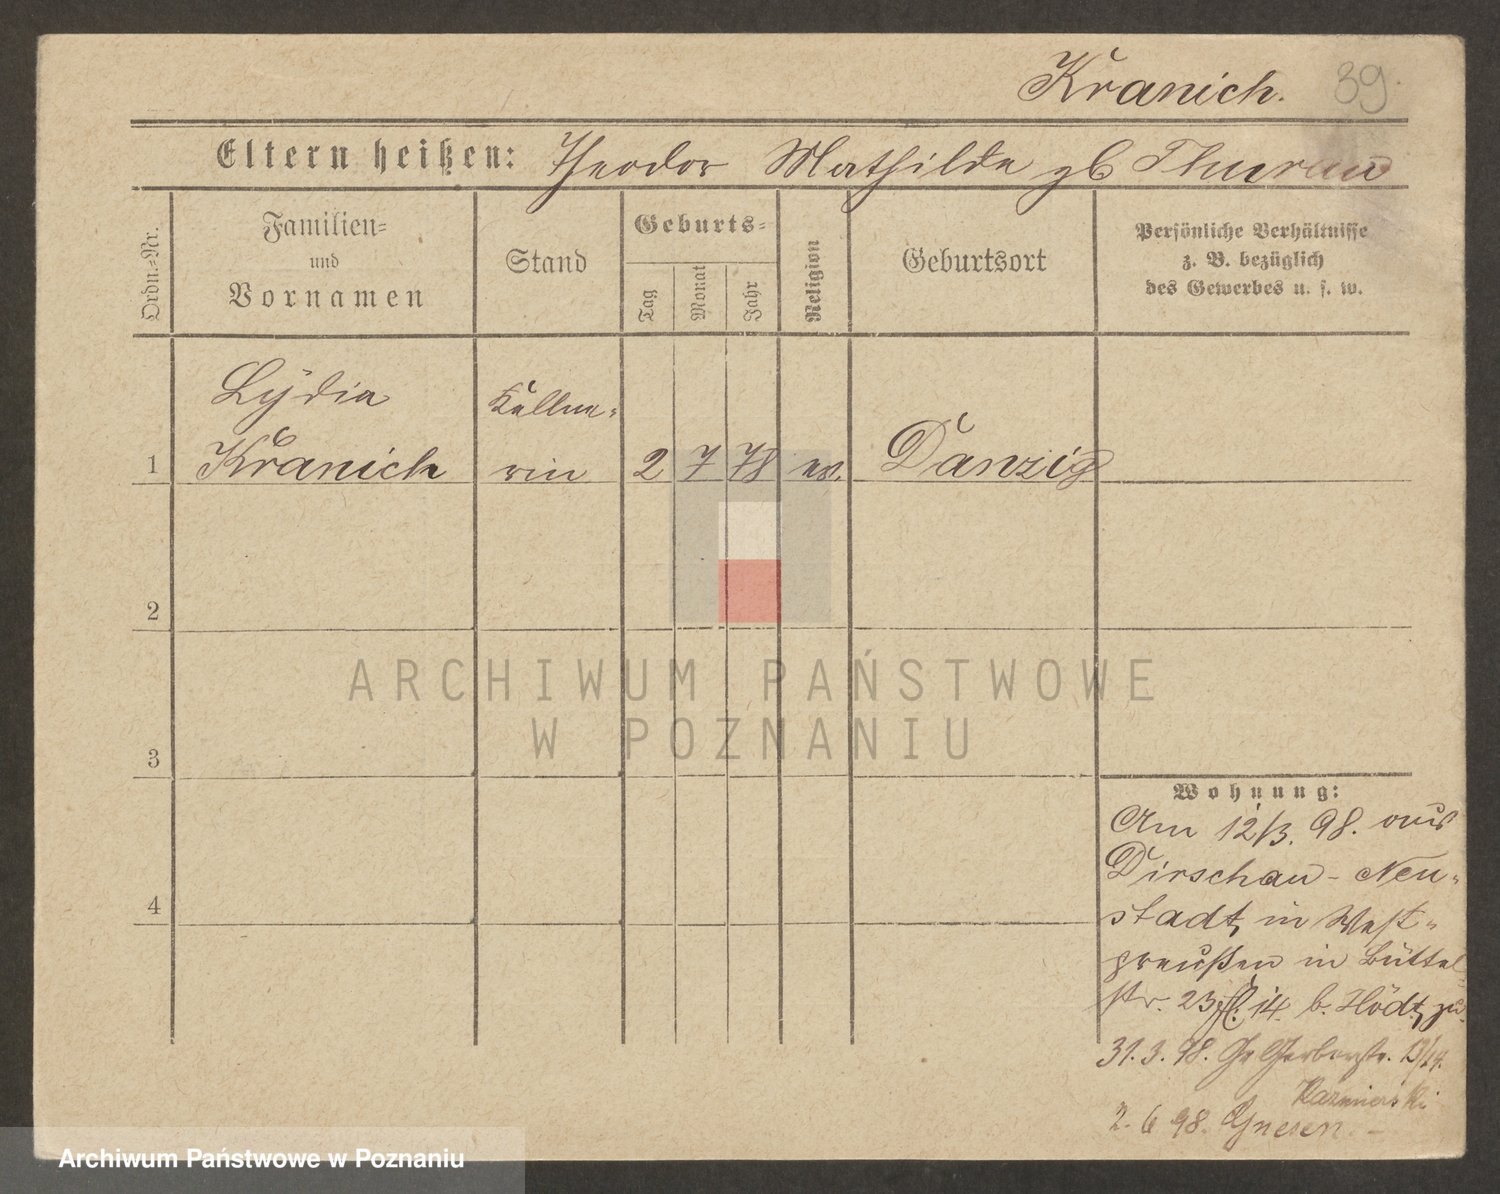 Kranich. 39.
Eltern heißen: Theodor Mathilde gb Thurau
Ordn.-Nr.
Familien-
und
Vornamen
Stand
Geburts-
Tag
Monat
Jahr
Religion
Geburtsort
Persönliche Verhältnisse
z. B. bezüglich
des Gewerbes u. s. w.
Lydia Kellne-
1 Kranich rin 2 7 78 ev. Danzig
2
ARCHIWUM PAŃSTWOWE
W POZNANIU
3
Wohnung:
Am 12/3. 98. aus
Dirschau - Neu-
stadt, in West-
preußen in Büttel
str. 23 14. b. Hödt, zu.
31. 3. 98. Gr Gerberstr.
Kazmierski
2. 6 98. Gnesen. -
4
Archiwum Państwowe w Poznaniu